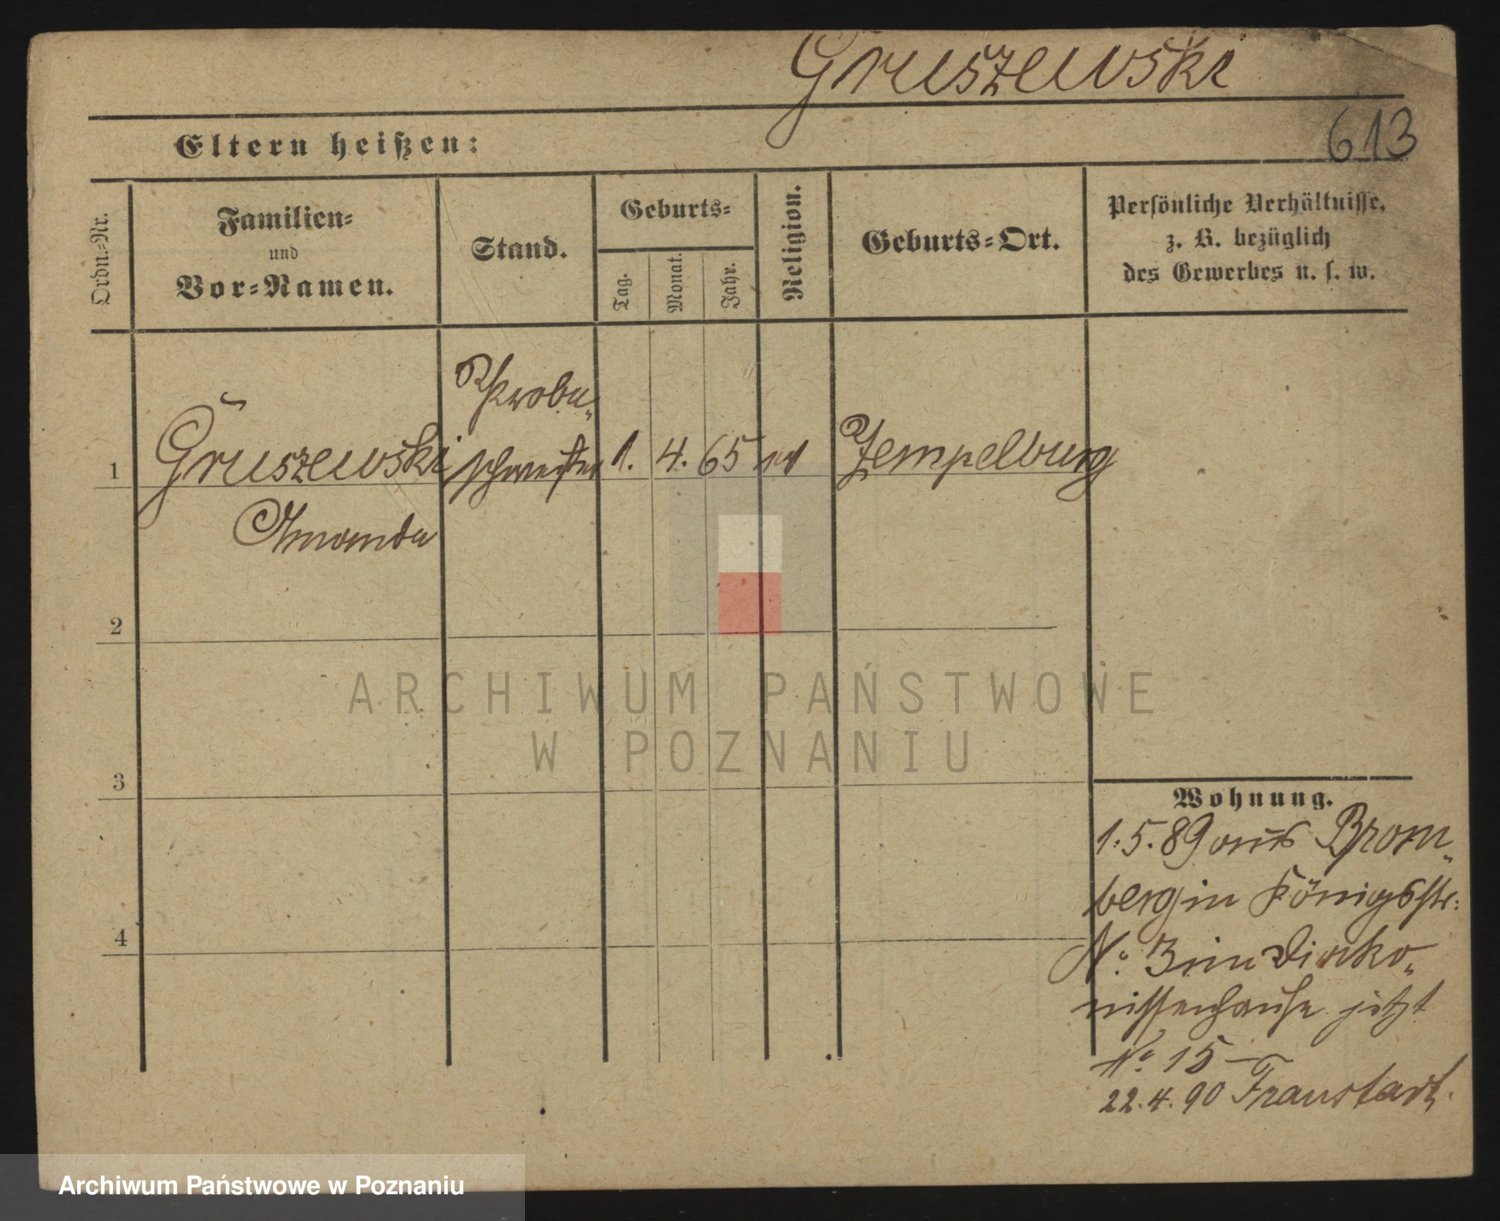 Gruszewski
613
Eltern heißen:
Ordn.-Nr.
Familien-
und
Vor-Namen.
Stand.
Geburts-
Tag.
Monat.
Jahr.
Religion.
Geburts-Ort.
Persönliche Verhältnisse,
z. B. bezüglich
des Gewerbes u. s. w.
Probe-
1 Gruszewski schwester 1. 4. 65 ev Zempelburg
Amanda
2
3
4
Wohnung.
1.5.89 aus Brom-
berg in Königsstr:
No. 3 im Diako-
nissenhause jetzt
No. 15 –
22.4.90 Fraustadt.
ARCHIWUM PAŃSTWOWE
W POZNANIU
Archiwum Państwowe w Poznaniu